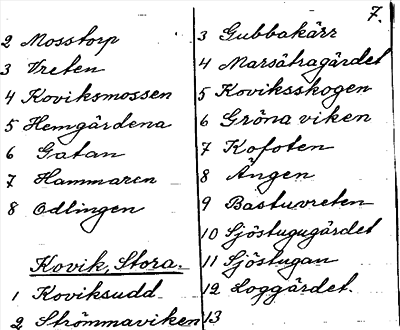 7.
2 Mosstorp
3 Vreten
4 Koviksmossen
5 Hemgärdena
6 Gatan
7 Hammaren
8 Odlingen
Kovik, Stora.
1 Koviksudd
2 Strömmaviken
3 Gubbakärr
4 Marsätragärdet
5 Koviksskogen
6 Gröna viken
7 Kofoten
8 Ängen
9 Bastuvreten
10 Sjöstugugärdet
11 Sjöstugan
12 Loggärdet.
13